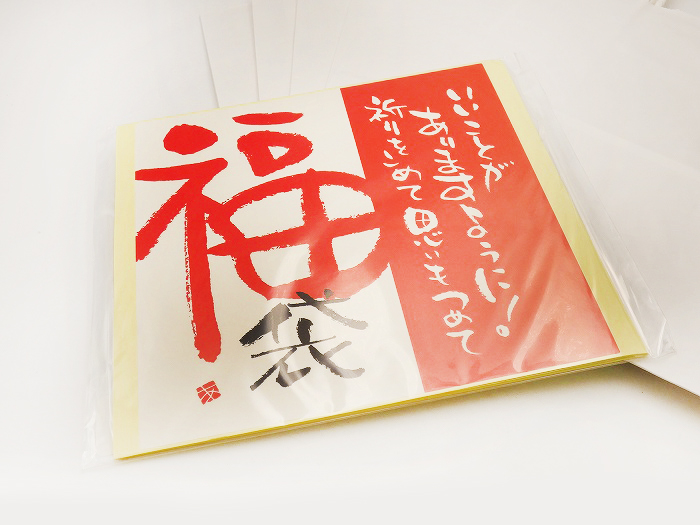 福
袋
いいことが
ありますように!。
祈りをこめて思いをつめて